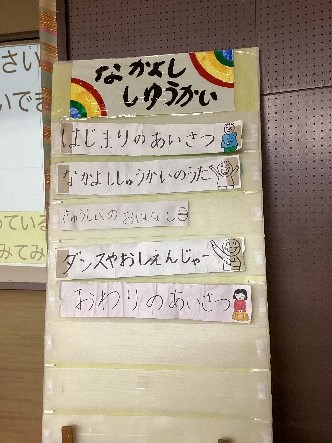 さい
いでき
なかよし
しゅうかい
はじまりのあいさつ
なかよししゅうかいのうた
おはなし
ダンスやおしえんじゃー
おわりのあいさつ
っている
みてみ